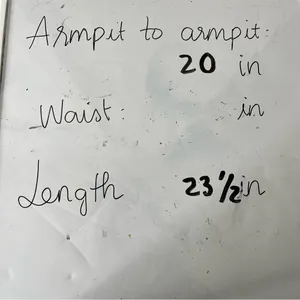 Armpit to armpit:
20 in
Waist: in
Length 23 1/2 in